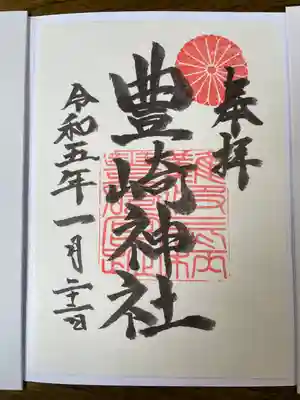 奉拝
豊崎神社
令和五年一月二十一日